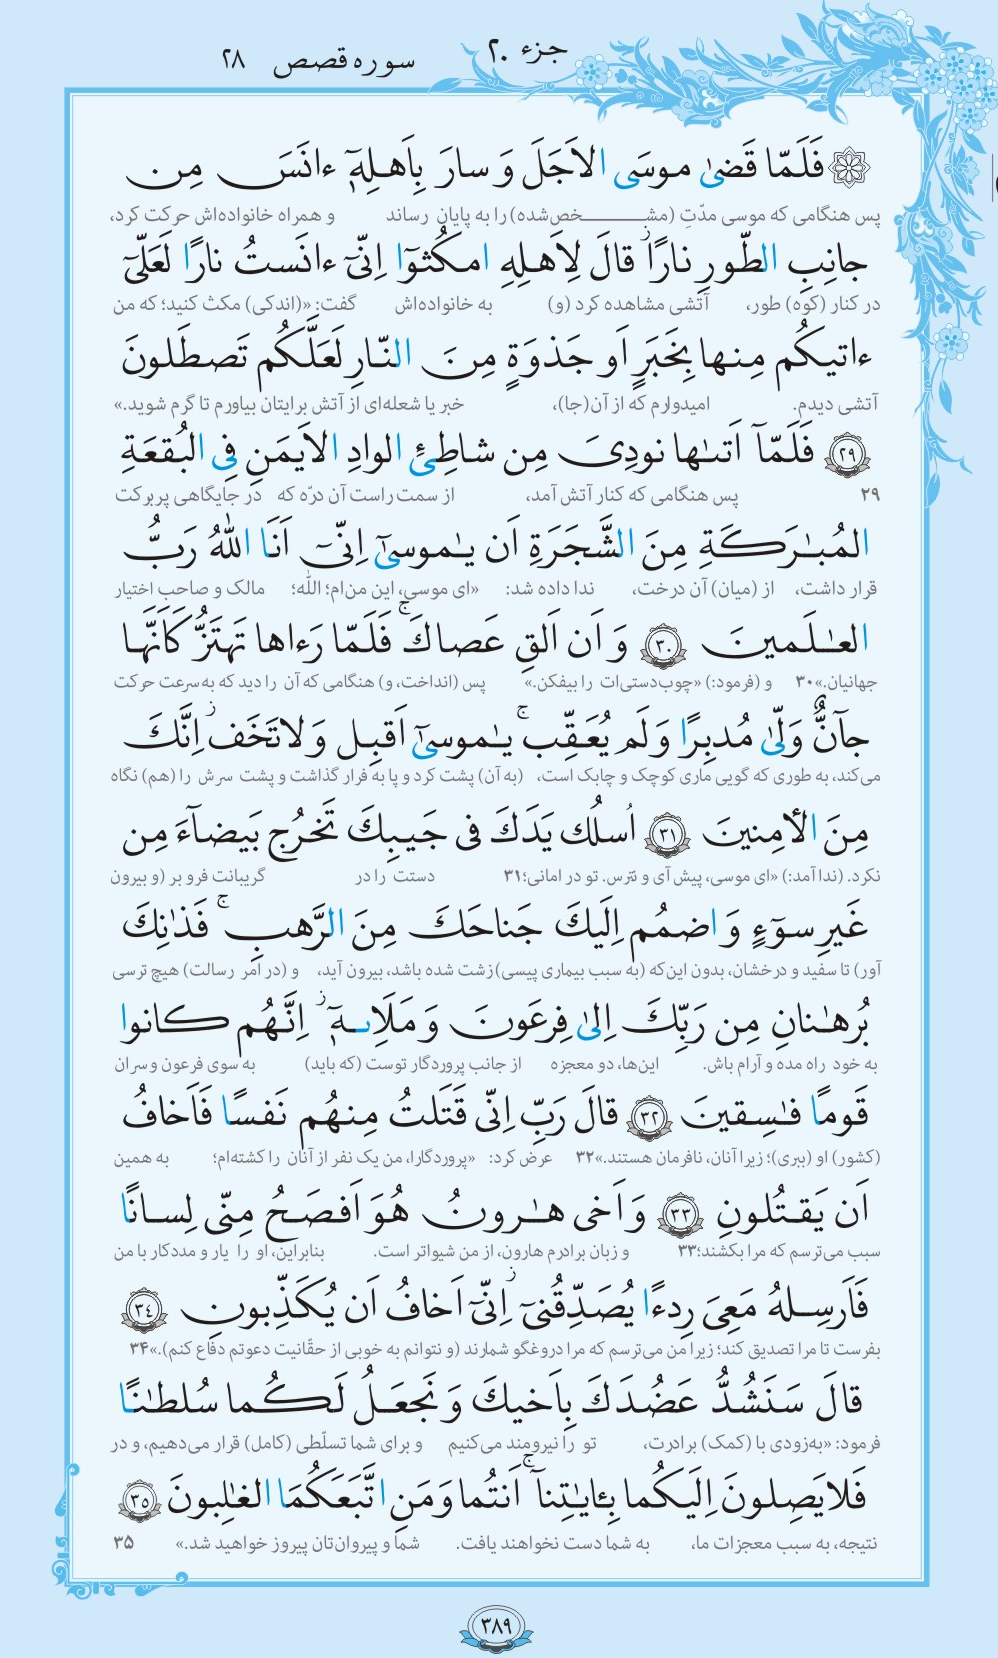 جزء ۲۰
سوره قصص ۲۸
فَلَمّا قَضىٰ موسَى الاَجَلَ وَ سارَ بِاَهلِهٖٓ ءانَسَ مِن
پس هنگامی که موسی مدّتِ (مشـخص‌شده) را به پایان رساند و همراه خانواده‌اش حرکت کرد،
جانِبِ الطّورِ نارًاۚ قالَ لِاَهلِهِ امكُثوٓا اِنّیٓ ءانَستُ نارًا لَعَلّیٓ
در کنار (کوه) طور، آتشی مشاهده کرد (و) به خانواده‌اش گفت: «(اندکی) مکث کنید؛ که من
ءاتیكُم مِنها بِخَبَرٍ اَو جَذوَةٍ مِنَ النّارِ لَعَلَّكُم تَصطَلونَ
آتشی دیدم. امیدوارم که از آن (جا)، خبر یا شعله‌ای از آتش برایتان بیاورم تا گرم شوید.»
﴿۲۹﴾ فَلَمّآ اَتىٰها نودِیَ مِن شاطِئِ الوادِ الاَیمَنِ فِی البُقعَةِ
۲۹ پس هنگامی که کنار آتش آمد، از سمت راست آن درّه که در جایگاهی پربرکت
المُبٰرَكَةِ مِنَ الشَّجَرَةِ اَن یٰموسىٰٓ اِنّیٓ اَنَا اللّٰهُ رَبُّ
قرار داشت، از (میان) آن درخت، ندا داده شد: «ای موسی، این من‌ام؛ اللّه؛ مالک و صاحب اختیار
العٰلَمینَ ﴿۳۰﴾ وَ اَن اَلقِ عَصاكَۚ فَلَمّا رَءاها تَهتَزُّ كَاَنَّها
جهانیان.»۳۰ و (فرمود:) «چوب‌دستی‌ات را بیفکن.» پس (انداخت، و) هنگامی که آن را دید که به‌سرعت حرکت
جآنٌّ وَلّىٰ مُدبِرًا وَ لَم یُعَقِّبۚ یٰموسىٰٓ اَقبِل وَ لا تَخَفۖ اِنَّكَ
می‌کند، به طوری که گویی ماری کوچک و چابک است، (به آن) پشت کرد و پا به فرار گذاشت و پشت سرش را (هم) نگاه
مِنَ الاٰمِنینَ ﴿۳۱﴾ اُسلُك یَدَكَ فی جَیبِكَ تَخرُج بَیضآءَ مِن
نکرد. (ندا آمد:) «ای موسی، پیش آی و نترس. تو در امانی؛۳۱ دستت را در گریبانت فرو بر (و بیرون
غَیرِ سوٓءٍ وَ اضمُم اِلَیكَ جَناحَكَ مِنَ الرَّهبِۚ فَذٰنِكَ
آور) تا سفید و درخشان، بدون این‌که (به سبب بیماری پیسی) زشت شده باشد، بیرون آید، و (در امر رسالت) هیچ ترسی
بُرهٰنانِ مِن رَبِّكَ اِلىٰ فِرعَونَ وَ مَلَاِی۟هٖٓۚ اِنَّهُم كانوا
به خود راه مده و آرام باش. این‌ها، دو معجزه از جانب پروردگار توست (که باید) به سوی فرعون و سران
قَومًا فٰسِقینَ ﴿۳۲﴾ قالَ رَبِّ اِنّی قَتَلتُ مِنهُم نَفسًا فَاَخافُ
(کشور) او (ببری)؛ زیرا آنان، نافرمان هستند.»۳۲ عرض کرد: «پروردگارا، من یک نفر از آنان را کشته‌ام؛ به همین
اَن یَقتُلونِ ﴿۳۳﴾ وَ اَخی هٰرونُ هُوَ اَفصَحُ مِنّی لِسانًا
سبب می‌ترسم که مرا بکشند؛۳۳ و زبان برادرم هارون، از من شیواتر است. بنابراین، او را یار و مددکار با من
فَاَرسِلهُ مَعِیَ رِدءًا یُصَدِّقُنیٓۖ اِنّیٓ اَخافُ اَن یُكَذِّبونِ ﴿۳۴﴾
بفرست تا مرا تصدیق کند؛ زیرا من می‌ترسم که مرا دروغگو شمارند (و نتوانم به خوبی از حقّانیت دعوتم دفاع کنم).»۳۴
قالَ سَنَشُدُّ عَضُدَكَ بِاَخیكَ وَ نَجعَلُ لَكُما سُلطٰنًا
فرمود: «به‌زودی با (کمک) برادرت، تو را نیرومند می‌کنیم و برای شما تسلّطی (کامل) قرار می‌دهیم، و در
فَلا یَصِلونَ اِلَیكُما بِـٔایٰتِنآۚ اَنتُما وَ مَنِ اتَّبَعَكُمَا الغٰلِبونَ ﴿۳۵﴾
نتیجه، به سبب معجزات ما، به شما دست نخواهند یافت. شما و پیروان‌تان پیروز خواهید شد.» ۳۵
۳۸۹